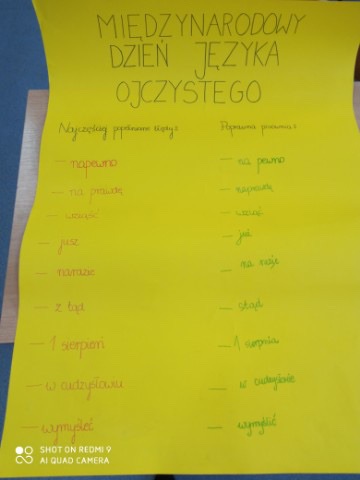 MIĘDZYNARODOWY
DZIEŃ JĘZYKA
OJCZYSTEGO
Najczęściej popełniane błędy: Poprawna pisownia:
— napewno — na pewno
— na prawdę — naprawdę
— wziąść — wziąć
— jusz — już
— narazie — na razie
— z tąd — stąd
— 1 sierpień — 1 sierpnia
— w cudzysłowiu — w cudzysłowie
— wymyśleć — wymyślić
SHOT ON REDMI 9
AI QUAD CAMERA